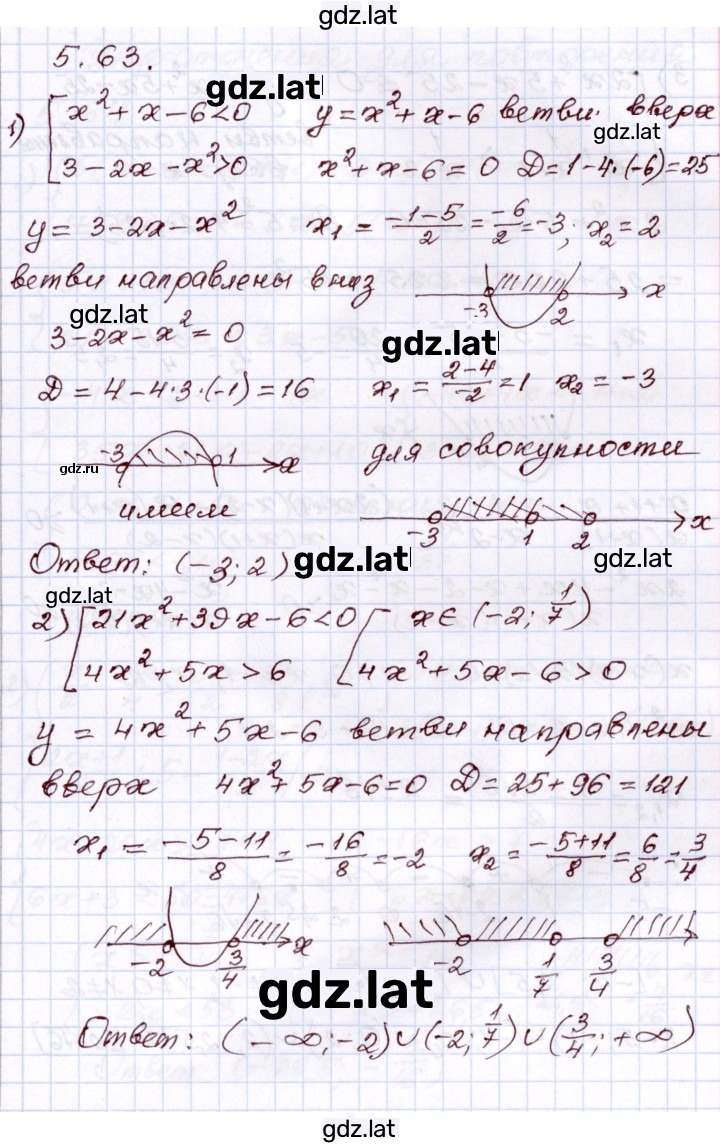 gdz.lat
5.63.
gdz.lat
1) [ x² + x − 6 < 0   y = x² + x − 6 ветви вверх
gdz.lat
3 − 2x − x² > 0   x² + x − 6 = 0   D = 1 − 4·(−6) = 25
y = 3 − 2x − x²   x₁ = (−1−5)/2 = −6/2 = −3; x₂ = 2
ветви направлены вниз
−3   2   x
gdz.lat
3 − 2x − x² = 0
gdz.lat
D = 4 − 4·3·(−1) = 16   x₁ = (2−4)/−2 = 1   x₂ = −3
−3   1   x   для совокупности
gdz.ru
имеем   −3   1   2   x
Ответ: (−3; 2)
gdz.lat
gdz.lat
gdz.lat
2) [ 21x² + 39x − 6 < 0   [ x ∈ (−2; 1/7)
4x² + 5x > 6   4x² + 5x − 6 > 0
gdz.lat
gdz.lat
y = 4x² + 5x − 6 ветви направлены
вверх   4x² + 5x − 6 = 0   D = 25 + 96 = 121
x₁ = (−5−11)/8 = −16/8 = −2   x₂ = (−5+11)/8 = 6/8 = 3/4
−2   3/4   x   −2   1/7   3/4
gdz.lat
gdz.lat
Ответ: (−∞; −2) ∪ (−2; 1/7) ∪ (3/4; +∞)
gdz.lat